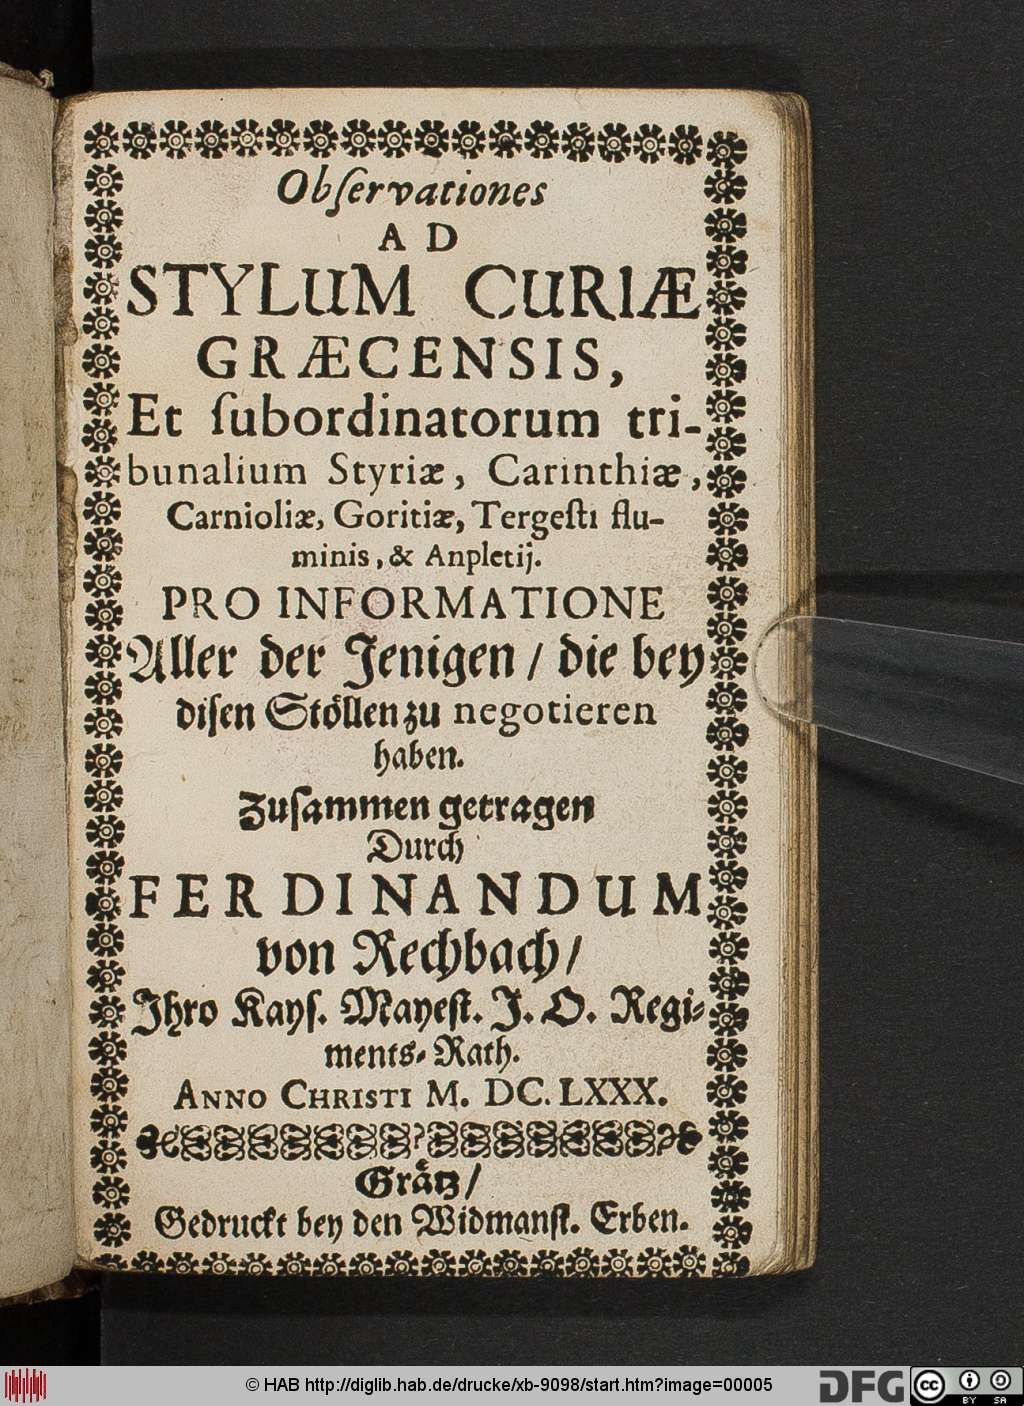 Obſervationes
AD
STYLUM CURIÆ
GRÆCENSIS,
Et ſubordinatorum tri-
bunalium Styriæ, Carinthiæ,
Carnioliæ, Goritiæ, Tergeſti flu-
minis, & Anpletij.
PRO INFORMATIONE
Aller der Jenigen / die bey
diſen Stöllen zu negotieren
haben.
Zuſammen getragen
Durch
FERDINANDUM
von Rechbach /
Ihro Kayſ. Mayeſt. J. O. Regi-
ments-Rath.
ANNO CHRISTI M. DC. LXXX.
Grätz /
Gedruckt bey den Widmanſt. Erben.
© HAB http://diglib.hab.de/drucke/xb-9098/start.htm?image=00005
DFG
cc BY SA